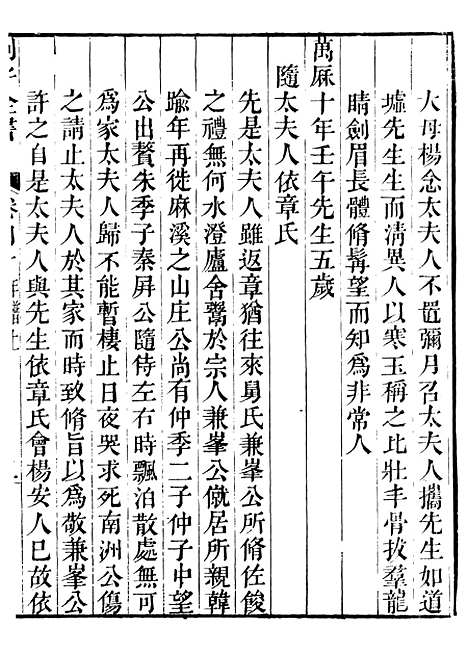 大母楊念太夫人不置彌月召太夫人攜先生如道
墟先生生而清異人以寒玉稱之比壯丰骨拔羣龍
睛劍眉長體脩髯望而知爲非常人
萬厤十年壬午先生五歲
隨太夫人依章氏
先是太夫人雖返章猶往來舅氏兼峯公所脩佐餕
之禮無何水澄廬舍鬻於宗人兼峯公僦居所親韓
踰年再徙麻溪之山庄公尚有仲季二子仲子中望
公出贅朱季子秦屏公隨侍左右時飄泊散處無可
爲家太夫人歸不能暫棲止日夜哭求死南洲公傷
之請止太夫人於其家而時致脩旨以爲敬兼峯公
許之自是太夫人與先生依章氏會楊安人已故依
劉子全書 卷四十 年譜上